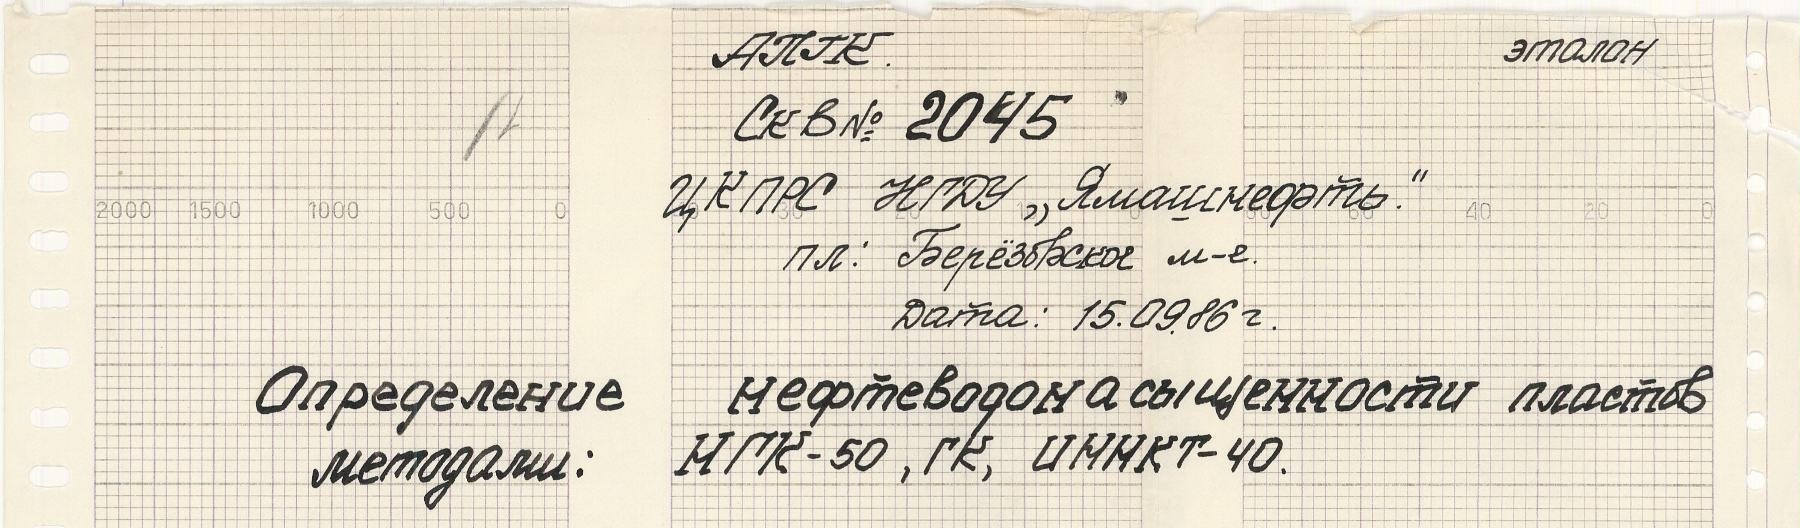 АПГК. эталон
Скв № 2045
ЦКПРС НГДУ „Ямашнефть."
2000 1500 1000 500 0 40 20 0
пл: Берёзовское м-е.
Дата: 15.09.86 г.
Определение нефтеводонасыщенности пластов
методами: НГК-50, ГК, ИННКТ-40.